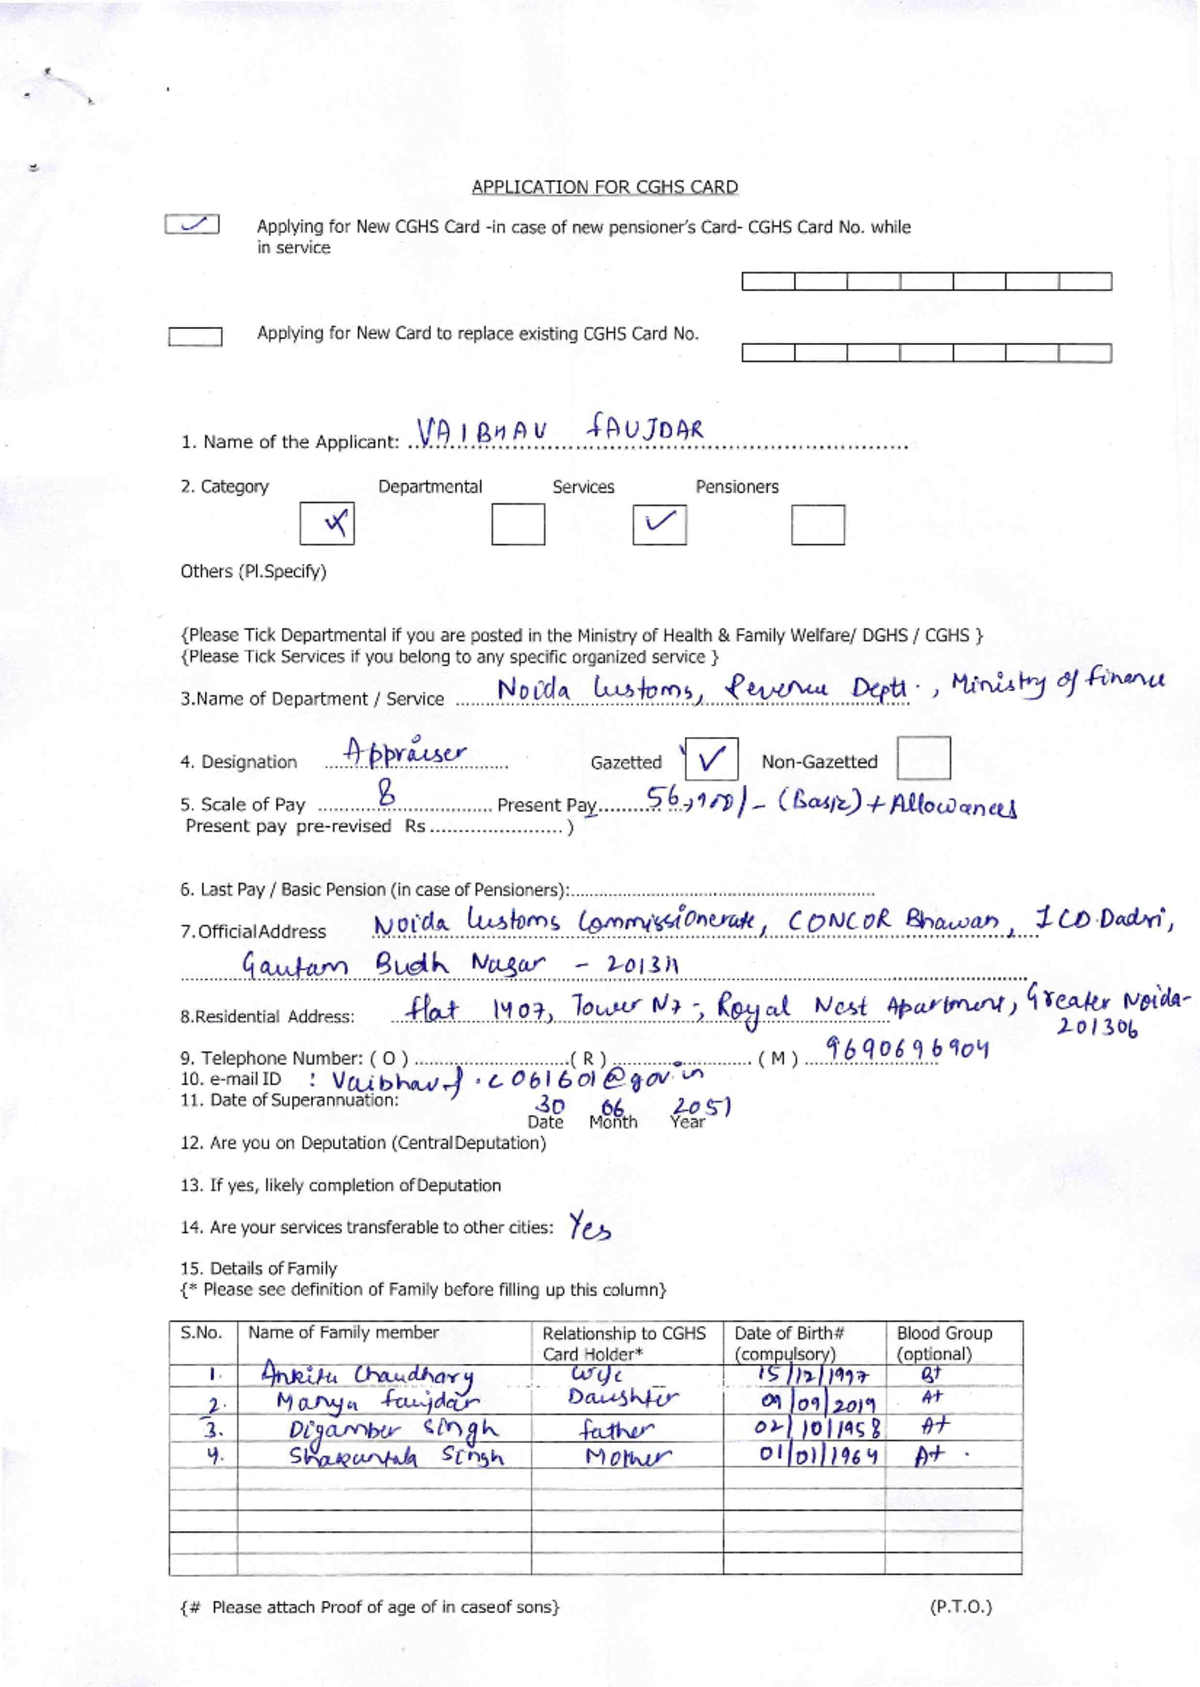 APPLICATION FOR CGHS CARD
Applying for New CGHS Card -in case of new pensioner's Card- CGHS Card No. while
in service
Applying for New Card to replace existing CGHS Card No.
1. Name of the Applicant: VAIBHAV FAUJDAR
2. Category Departmental Services Pensioners
Others (Pl.Specify)
{Please Tick Departmental if you are posted in the Ministry of Health & Family Welfare/ DGHS / CGHS }
{Please Tick Services if you belong to any specific organized service }
3.Name of Department / Service Noida Customs, Revenue Deptt., Ministry of finance
4. Designation Appraiser Gazetted Non-Gazetted
5. Scale of Pay 8 Present Pay 56,900/- (Basic) + Allowances
Present pay pre-revised Rs )
6. Last Pay / Basic Pension (in case of Pensioners):
7.OfficialAddress Noida Customs Commissionerate, CONCOR Bhawan, ICD Dadri,
Gautam Budh Nagar - 201311
8.Residential Address: flat 1407, Tower N7-, Royal Nest Apartment, Greater Noida-
201306
9. Telephone Number: ( O ) ( R ) ( M ) 9690696904
10. e-mail ID : Vaibhavf.c061601@gov.in
11. Date of Superannuation: 30 06 2051
Date Month Year
12. Are you on Deputation (CentralDeputation)
13. If yes, likely completion ofDeputation
14. Are your services transferable to other cities: Yes
15. Details of Family
{* Please see definition of Family before filling up this column}
S.No. Name of Family member Relationship to CGHS Card Holder* Date of Birth# (compulsory) Blood Group (optional)
1. Ankita Chaudhary Wife 15/12/1997 B+
2. Manya faujdar Daughter 09/09/2019 A+
3. Digamber Singh father 02/10/1958 A+
4. Shakuntala Singh Mother 01/01/1964 A+
{# Please attach Proof of age of in caseof sons} (P.T.O.)